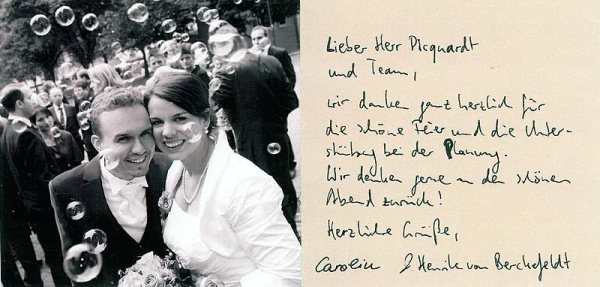 Lieber Herr Dicquardt
und Team,
wir danken ganz herzlich für
die schöne Feier und die Unter-
stützung bei der Planung.
Wir denken gerne an den schönen
Abend zurück!
Herzliche Grüße,
Carolin & Henrik von Berchefeldt